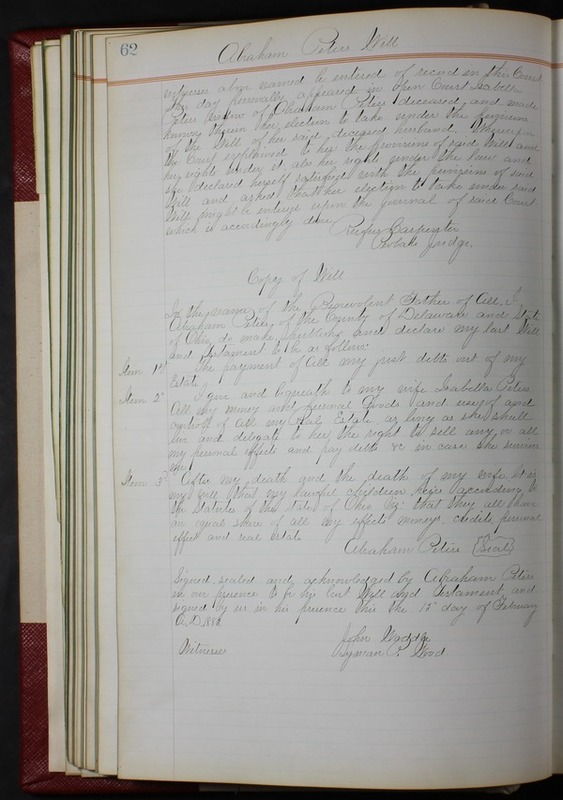 62
Abraham Peters Will
witnesses above named be entered of record in this Court
This day personally appeared in open Court Isabella
Peters widow of Abraham Peters deceased, and made
known therein her election to take under the provisions
of the Will of her said deceased husband. Whereupon
the Court explained to her the provisions of said Will and
her rights under it also her rights under the law and
she declared herself satisfied with the provisions of said
Will and asked that her election to take under said
Will might be entered upon the journal of said Court
which is accordingly done
Rufus Carpenter
Probate Judge
Copy of Will
In the name of the Benevolent Father of All, I,
Abraham Peters of the County of Delaware and State
of Ohio do make publish and declare my last Will
and Testament to be as follows:
Item 1st The payment of all my just debts out of my
Estate
Item 2d I give and bequeath to my wife Isabella Peters
All my money and personal Goods and use of and
control of all my Real Estate as long as she shall
live and delegate to her the right to sell any or all
my personal effects and pay debts &c in case she survives
me
Item 3d After my death and the death of my wife it is
my will that my lawful children heirs according to
the Statute of the State of Ohio that they all have
an equal share of all my effects moneys, credits, personal
effects and real estate
Abraham Peters (Seal)
Signed sealed and acknowledged by Abraham Peters
in our presence to be his last Will and Testament, and
signed by us in his presence this the 15th day of February
A.D. 188
Witnesses John
Lyman P. Wood